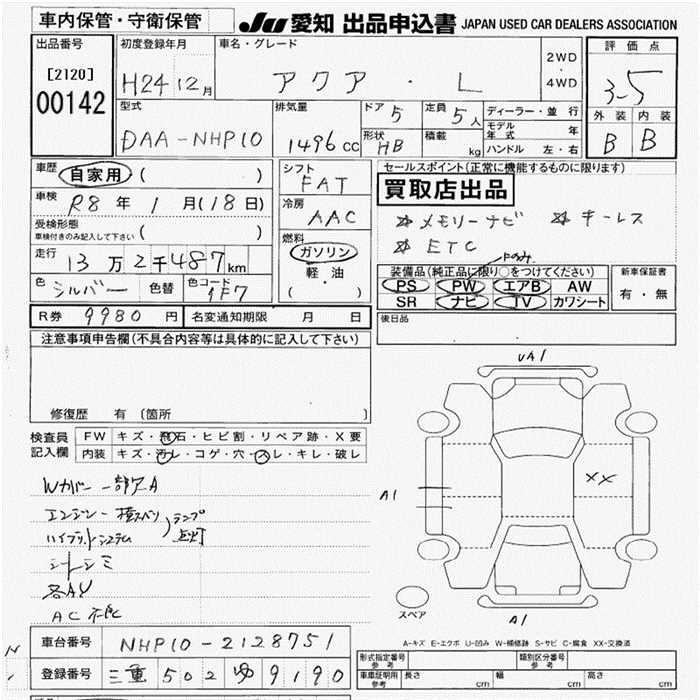 車内保管・守衛保管
JU 愛知 出品申込書 JAPAN USED CAR DEALERS ASSOCIATION
出品番号
[2120]
00142
初度登録年月
H24 12月
車名・グレード
アクア ・ L
2WD
・
4WD
評価点
3.5
外装 内装
B B
型式
DAA-NHP10
排気量
1496cc
ドア 5
定員 5人
形状 HB
積載 kg
ディーラー・並行
モデル年式 年
ハンドル 左・右
車歴 自家用 ( )
車検 R8年 1月(18日)
受検形態
車検付きのみ記入して下さい ( )
走行 13万2千487km
色 シルバー 色替 色コード 1F7
シフト
FAT
冷房
AAC
燃料
ガソリン
軽・油
( ・ )
セールスポイント(正常に機能するものに限ります)
買取店出品
☆メモリーナビ ☆キーレス
☆ETC
Fのみ
装備品(純正品に限り○をつけてください)
PS PW エアB AW
SR ナビ TV カワシート
新車保証書
有・無
R券 9980円 名変通知期限 月 日
後日品
注意事項申告欄(不具合内容等は具体的に記入して下さい)
修復歴 有 〔箇所 〕
検査員記入欄
FW キズ・飛石・ヒビ割・リペア跡・X要
内装 キズ・汚レ・コゲ・穴・スレ・キレ・破レ
Wカバー一部欠A
エンジン
ハイブリッドシステム
ランプ点灯
シートシミ
各AU
AC不良
UA1
A1
XX
A1
スペア
A-キズ E-エクボ U-凹み W-補修跡 S-サビ C-腐食 XX-交換済
車台番号 NHP10-2128751
登録番号 三重 502 ゆ 9190
形式指定番号 参考
類別区分番号 参考
車庫証明用 参考 長さ cm 幅 cm 高さ cm